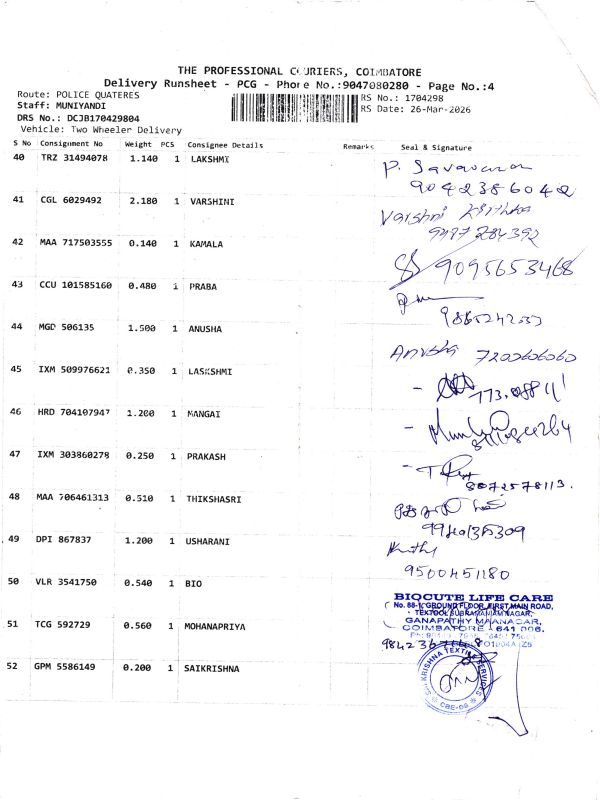 THE PROFESSIONAL COURIERS, COIMBATORE
Delivery Runsheet - PCG - Phore No.:9047080280 - Page No.:4
Route: POLICE QUATERES
RS No.: 1704298
Staff: MUNIYANDI
RS Date: 26-Mar-2026
DRS No.: DCJB170429804
Vehicle: Two Wheeler Delivery
S No Consignment No Weight PCS Consignee Details Remarks Seal & Signature
40 TRZ 31494078 1.140 1 LAKSHMI
P. Saravanan
9042386042
41 CGL 6029492 2.180 1 VARSHINI
Varshni
9487284392
42 MAA 717503555 0.140 1 KAMALA
9095653468
43 CCU 101585160 0.480 1 PRABA
44 MGD 506135 1.500 1 ANUSHA
Anusha 7200606060
45 IXM 509976621 0.350 1 LASKSHMI
46 HRD 704107947 1.200 1 MANGAI
47 IXM 303860278 0.250 1 PRAKASH
8072578113.
48 MAA 706461313 0.510 1 THIKSHASRI
49 DPI 867837 1.200 1 USHARANI
9500451180
50 VLR 3541750 0.540 1 BIO
BIOCUTE LIFE CARE
GROUND FLOOR, FIRST MAIN ROAD,
TEXTOOL SUBRAMANIAM NAGAR,
GANAPATHY MAANAGAR,
COIMBATORE - 641 006.
51 TCG 592729 0.560 1 MOHANAPRIYA
52 GPM 5586149 0.200 1 SAIKRISHNA
SAI KRISHNA TEXTILE SERVICES
CBE-06